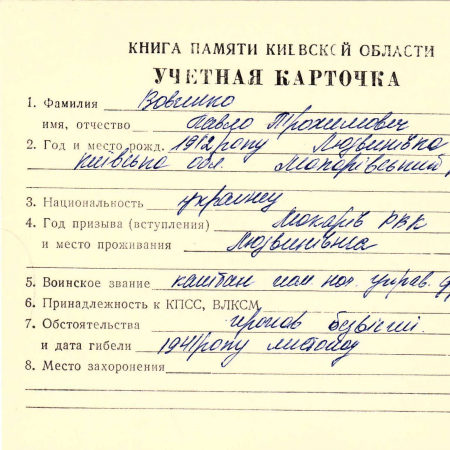 КНИГА ПАМЯТИ КИЕВСКОЙ ОБЛАСТИ
УЧЕТНАЯ КАРТОЧКА
1. Фамилия Вовченко
имя, отчество Павло Трохимович
2. Год и место рожд. 1912 року Людвинівка
Київська обл. Макарівський
3. Национальность українец
4. Год призыва (вступления) Макарів РВК
и место проживания Людвинівка
5. Воинское звание капітан пом нач. управ.
6. Принадлежность к КПСС, ВЛКСМ
7. Обстоятельства пропав безвісті.
и дата гибели 1941 року листопад
8. Место захоронения